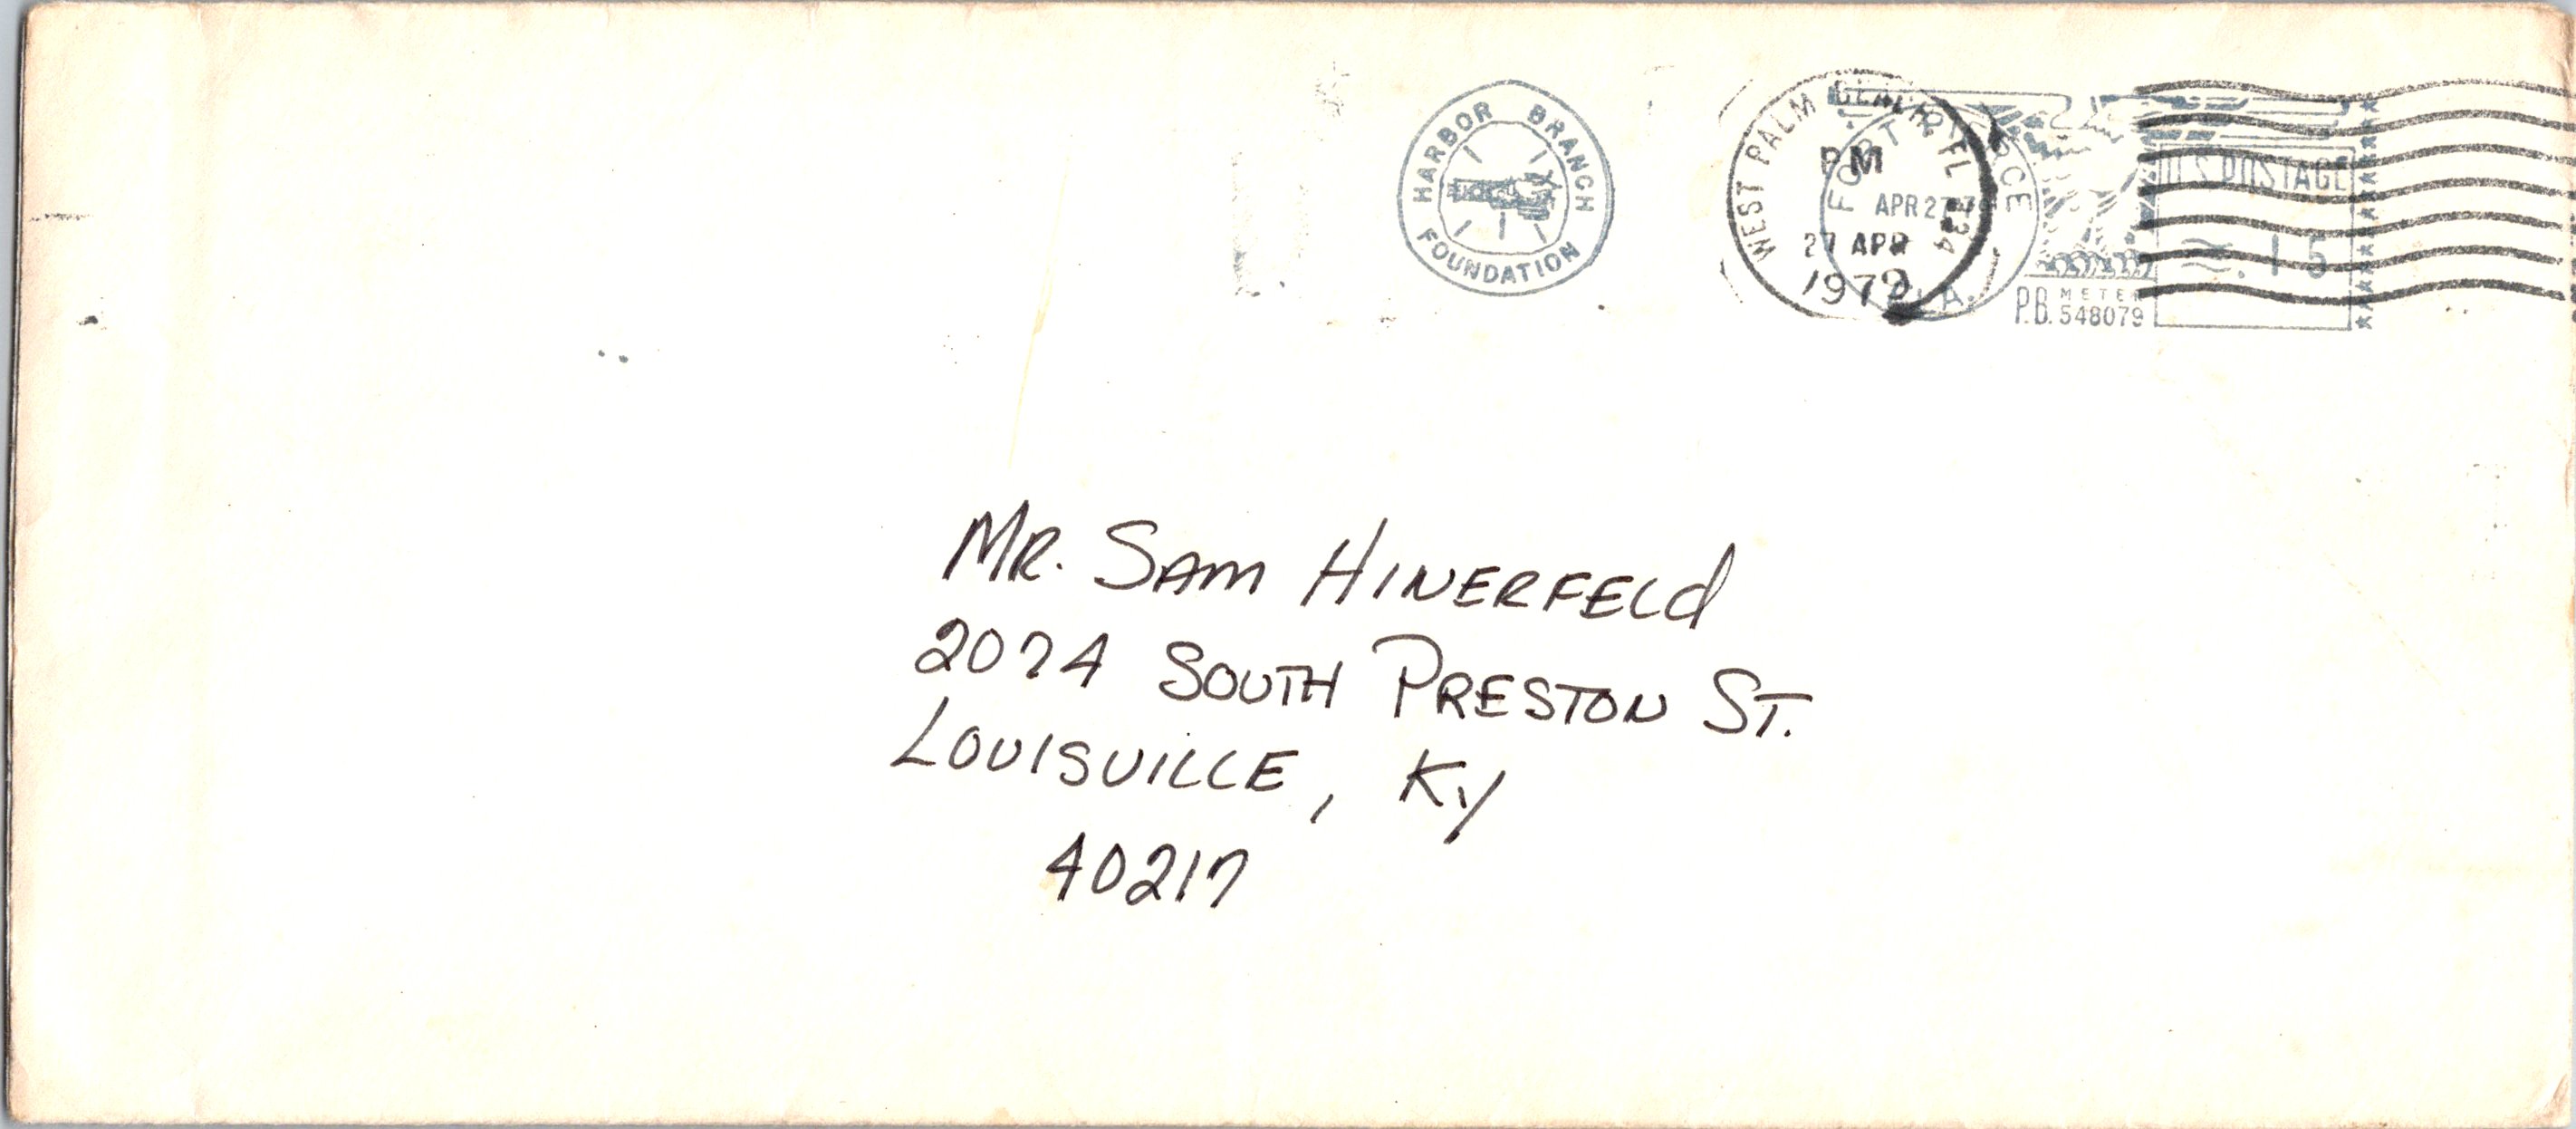 HARBOR BRANCH
FOUNDATION
WEST PALM BEACH, FL 334
PM
27 APR
1979
FORT PIERCE
APR 27 '79
FLA.
U.S. POSTAGE
≈.15
P.B. METER
548079
MR. SAM HINERFELd
2074 SOUTH PRESTON ST.
LOUISVILLE, Ky
40217